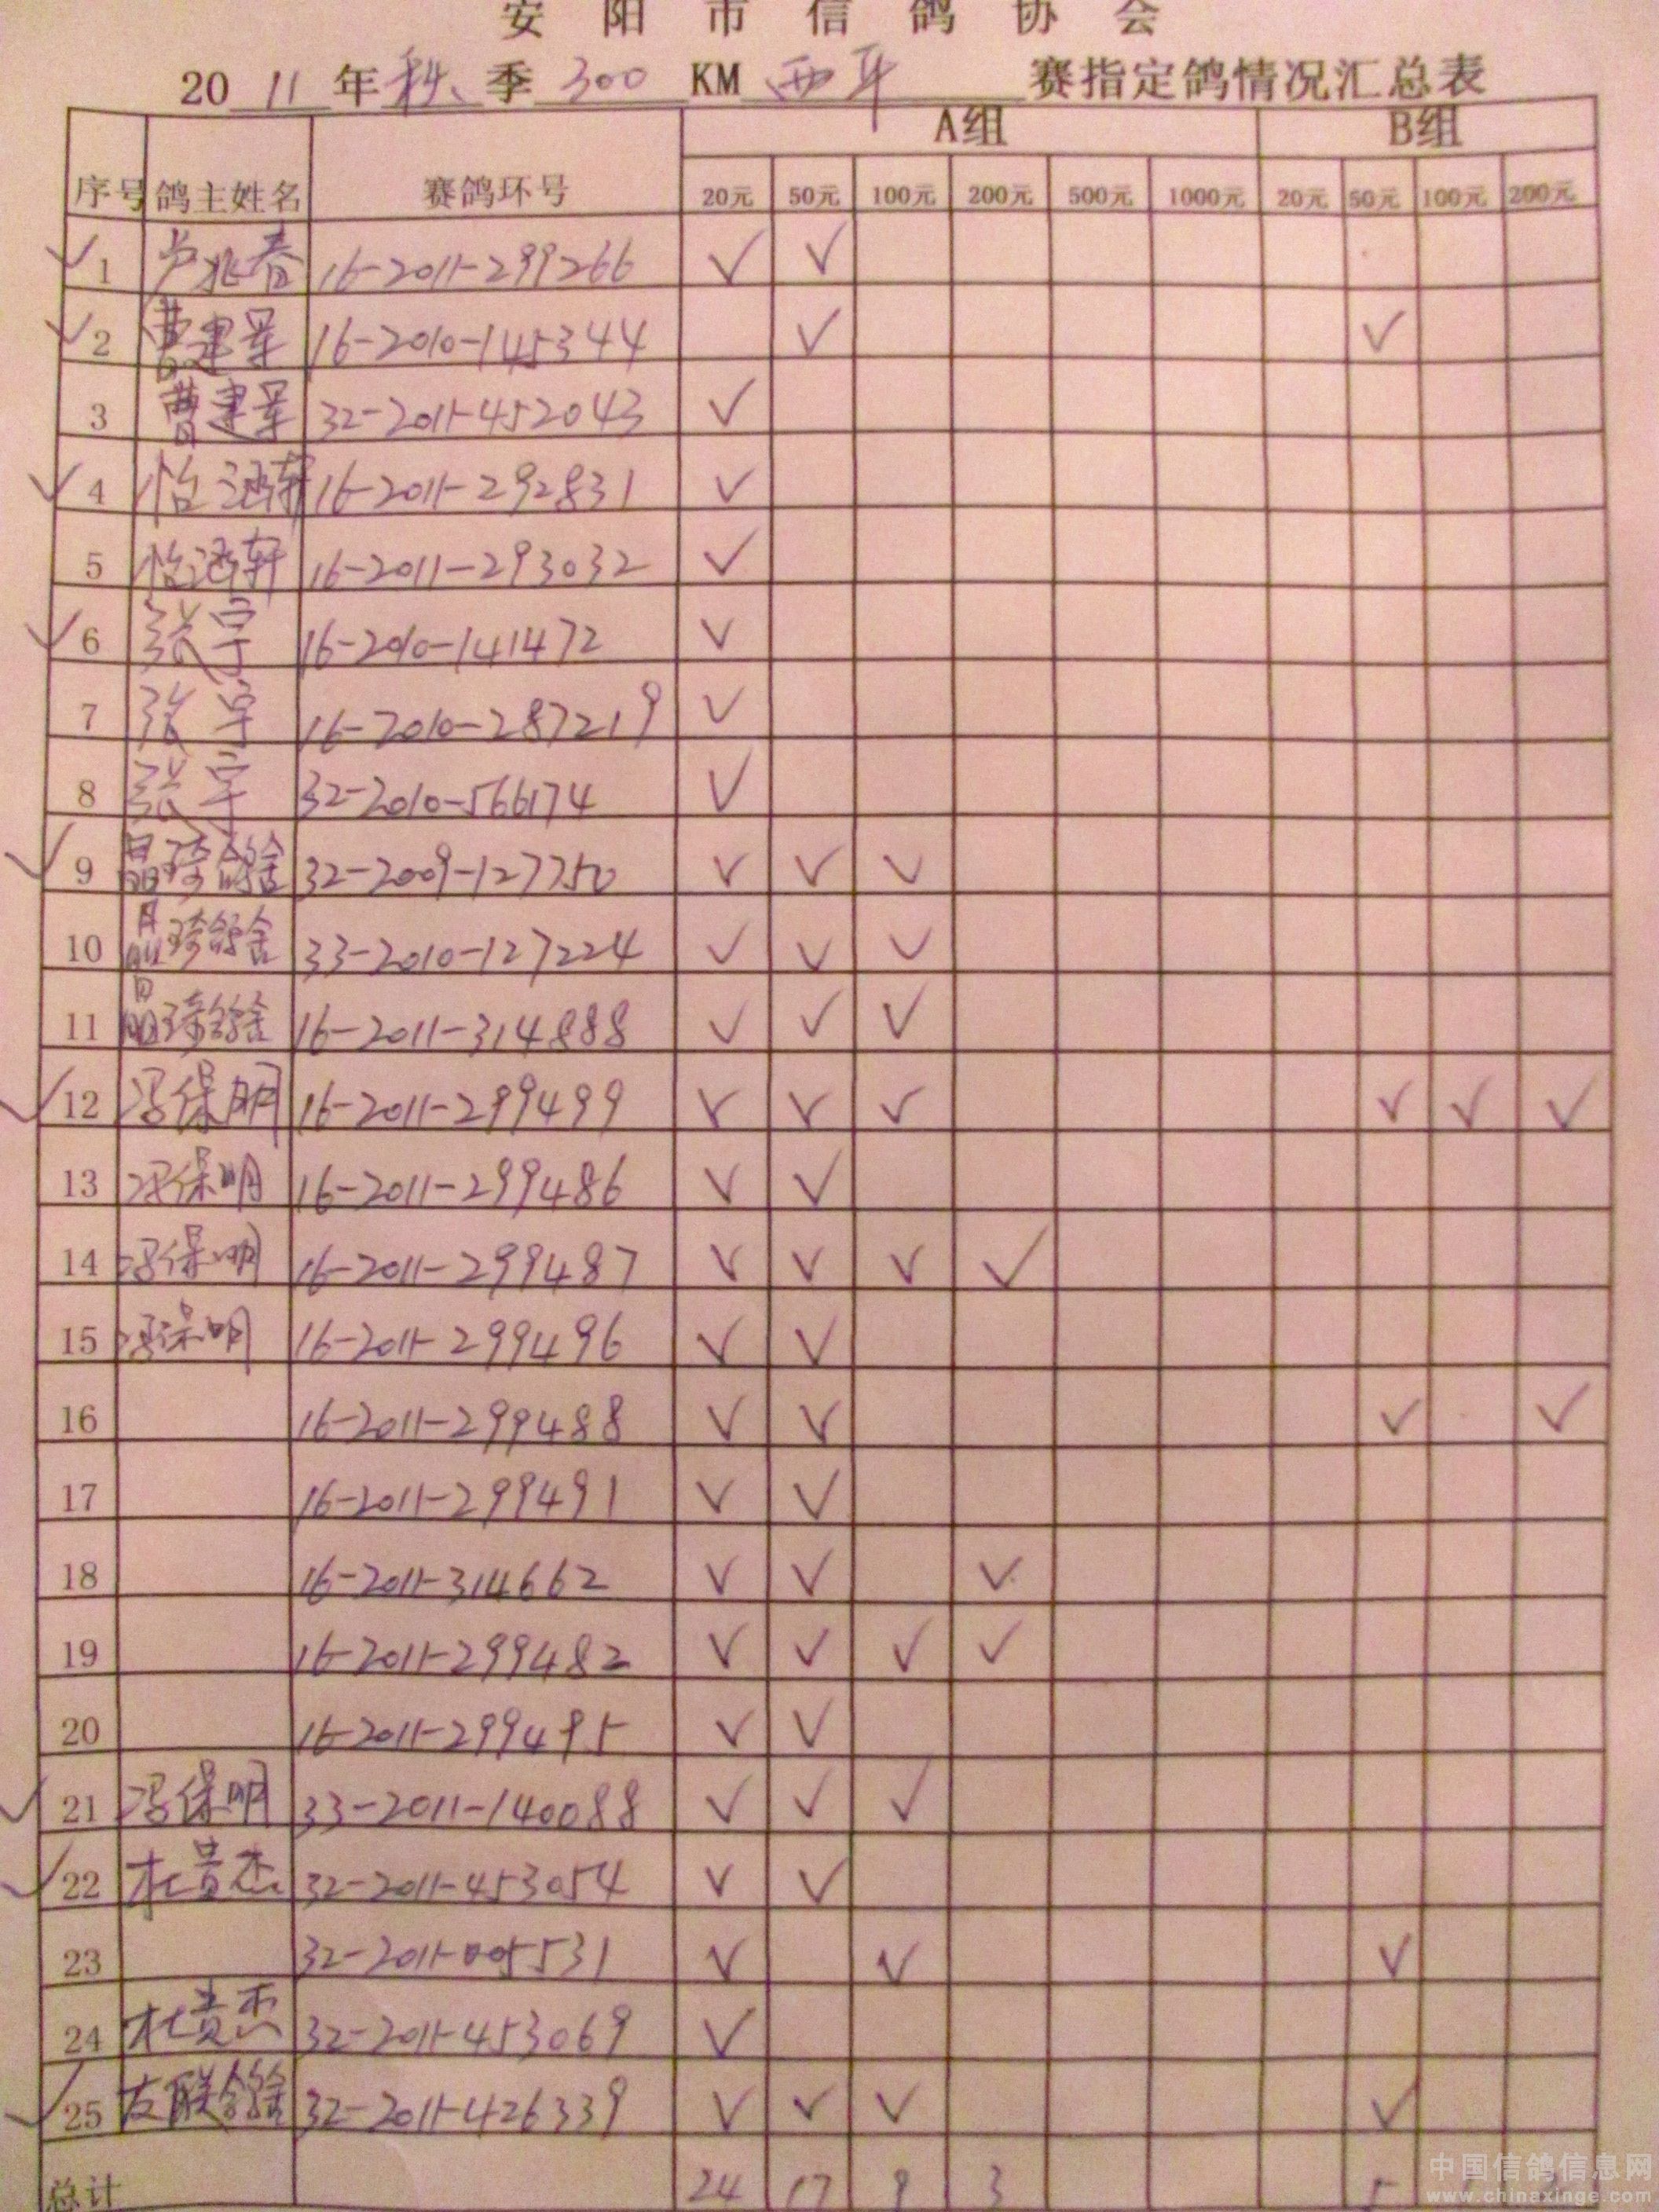 安阳市信鸽协会
2011年秋季300 KM 赛指定鸽情况汇总表
序号 鸽主姓名 赛鸽环号 A组 B组
20元 50元 100元 200元 500元 1000元 20元 50元 100元 200元
✓ 1 卢兆春 16-2011-299266 ✓ ✓
✓ 2 曹建军 16-2010-145344 ✓ ✓
3 曹建军 32-2011-452043 ✓
✓ 4 怡涵轩 16-2011-292831 ✓
5 怡涵轩 16-2011-293032 ✓
✓ 6 张宇 16-2010-141472 ✓
7 张宇 16-2010-287219 ✓
8 张宇 32-2010-566174 ✓
✓ 9 晶琦鸽舍 32-2009-127750 ✓ ✓ ✓
10 晶琦鸽舍 33-2010-127224 ✓ ✓ ✓
11 晶琦鸽舍 16-2011-314888 ✓ ✓ ✓
✓ 12 冯保明 16-2011-299499 ✓ ✓ ✓ ✓ ✓ ✓
13 冯保明 16-2011-299486 ✓ ✓
14 冯保明 16-2011-299487 ✓ ✓ ✓ ✓
15 冯保明 16-2011-299496 ✓ ✓
16 16-2011-299488 ✓ ✓ ✓ ✓
17 16-2011-299491 ✓ ✓
18 16-2011-314662 ✓ ✓ ✓
19 16-2011-299482 ✓ ✓ ✓ ✓
20 16-2011-299495 ✓ ✓
✓ 21 冯保明 33-2011-140088 ✓ ✓ ✓
✓ 22 杜贵杰 32-2011-453054 ✓ ✓
23 32-2011-005531 ✓ ✓ ✓
24 杜贵杰 32-2011-453069 ✓
✓ 25 友联鸽舍 32-2011-426339 ✓ ✓ ✓ ✓
总计 24 17 9 3 5
中国信鸽信息网
www.chinaxinge.com